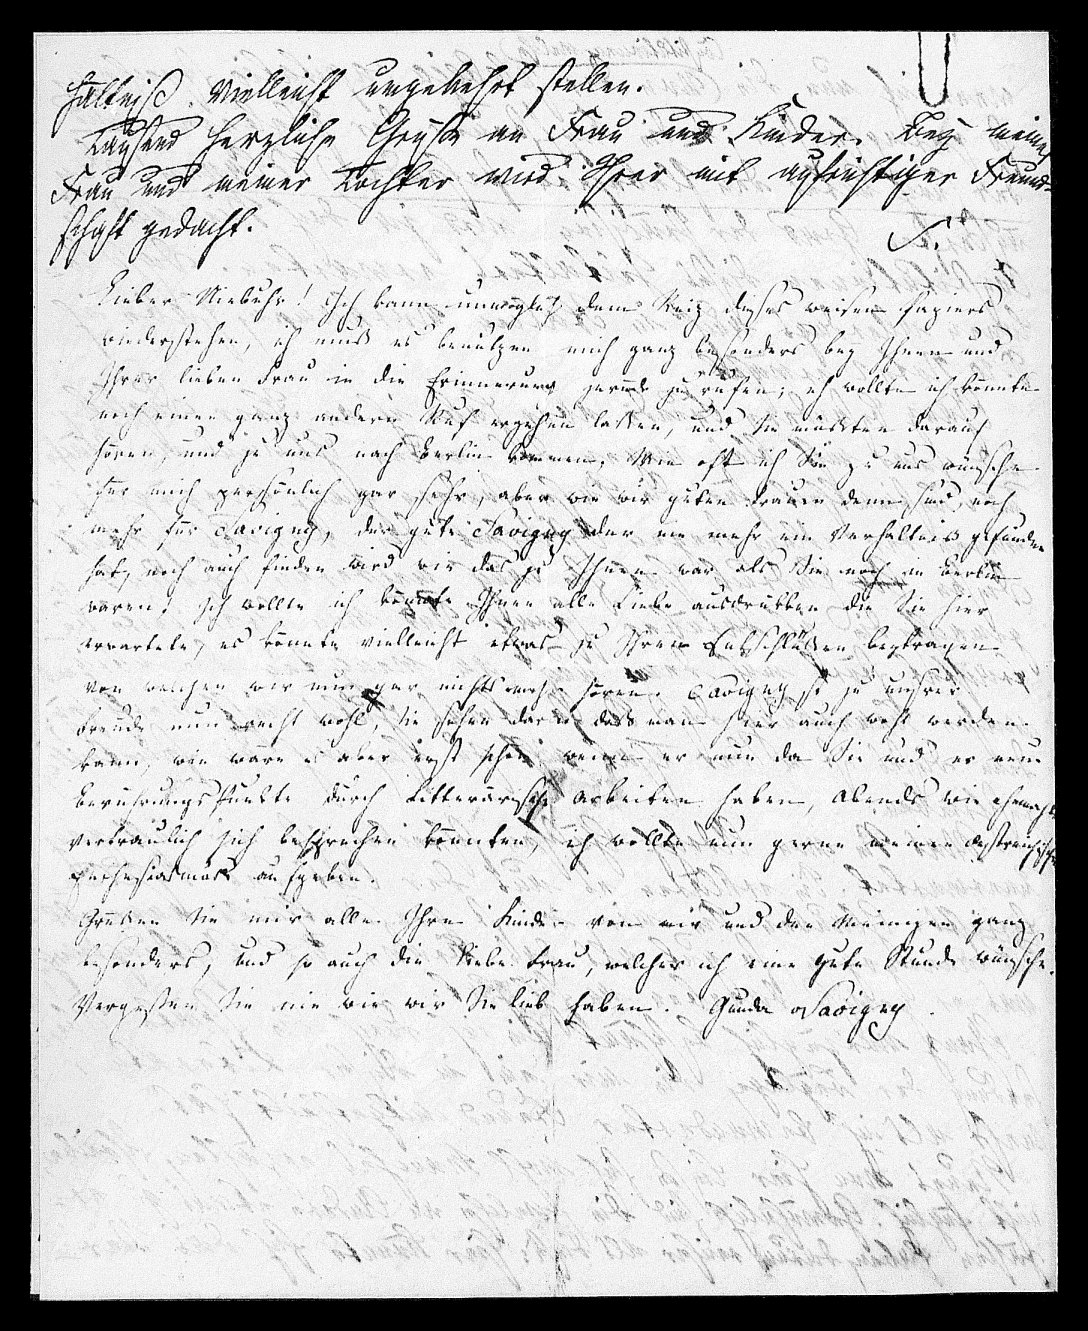 hältniß vielleicht umgekehrt stellen.
Tausend herzliche Grüße an Frau und Kinder. Bey meiner
Frau und meiner Tochter wird Ihrer mit aufrichtiger Freund-
schaft gedacht. S.
Lieber Niebuhr! Ich kann unmöglich dem Reiz dieses weisen papiers
wiederstehen, ich muß es benutzen mich ganz besonders bey Ihnen und
Ihrer lieben Frau in die Erinnerung zurück zu rufen, ich wollte ich könnte
noch einen ganz andern Ruf ergehen lassen, und Sie müssten darauf
hören, und zu uns nach Berlin kommen, Wie oft ich Sie zu uns wünsche
für mich persönlich gar sehr, aber wie wir guten Frauen denn sind, noch
mehr für Savigny, der gute Savigny der nie mehr ein Verhältniß gefunden
hat, noch auch finden wird wie das zu Ihnen war als Sie noch in Berlin
waren. Ich wollte ich könnte Ihnen alle Liebe ausdrükken die Sie hier
erwartete, es könnte vielleicht etwas zu Ihren Entschlüssen beytragen
von welchen wir nun gar nichts mehr hören. Savigny ist zu unsrer
Freude nun recht wohl, Sie sehen daran daß man hier auch wohl werden
kann, wie wäre es aber erst schön wenn er nun da Sie und er neue
berührungs Punkte durch Litterärische arbeiten haben, Abends wie ehemahls
vertraulich sich besprechen könnten, ich wollte nun gerne meinen
aufgeben.
Grüßen Sie mir alle Ihre Kinder von mir und den Meinigen ganz
besonders, und so auch die Liebe Frau, welcher ich eine gute Stunde wünsche.
Vergessen Sie nie wie wir Sie lieb haben. Gunda Savigny